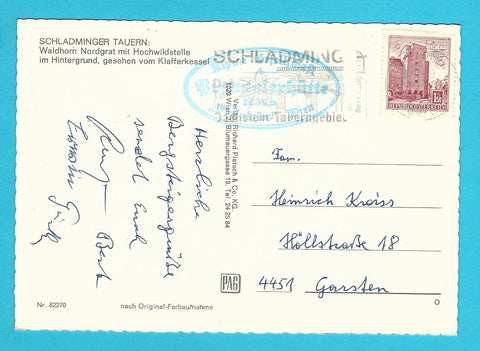 SCHLADMINGER TAUERN:
Waldhorn Nordgrat mit Hochwildstelle
im Hintergrund, gesehen vom Klafferkessel
SCHLADMING
Dachstein-Tauerngebiet
Wien
REPUBLIK ÖSTERREICH
Verlag Richard Pietsch & Co. KG.
1020 Wien, Blumauergasse 19, Tel. 24 25 84
Herzliche
Bergsteigergrüße
sendet Euch
Fam.
Heinrich Kroiss
Höllstraße 18
4451 Garsten
PAG
Nr. 82270
nach Original-Farbaufnahme